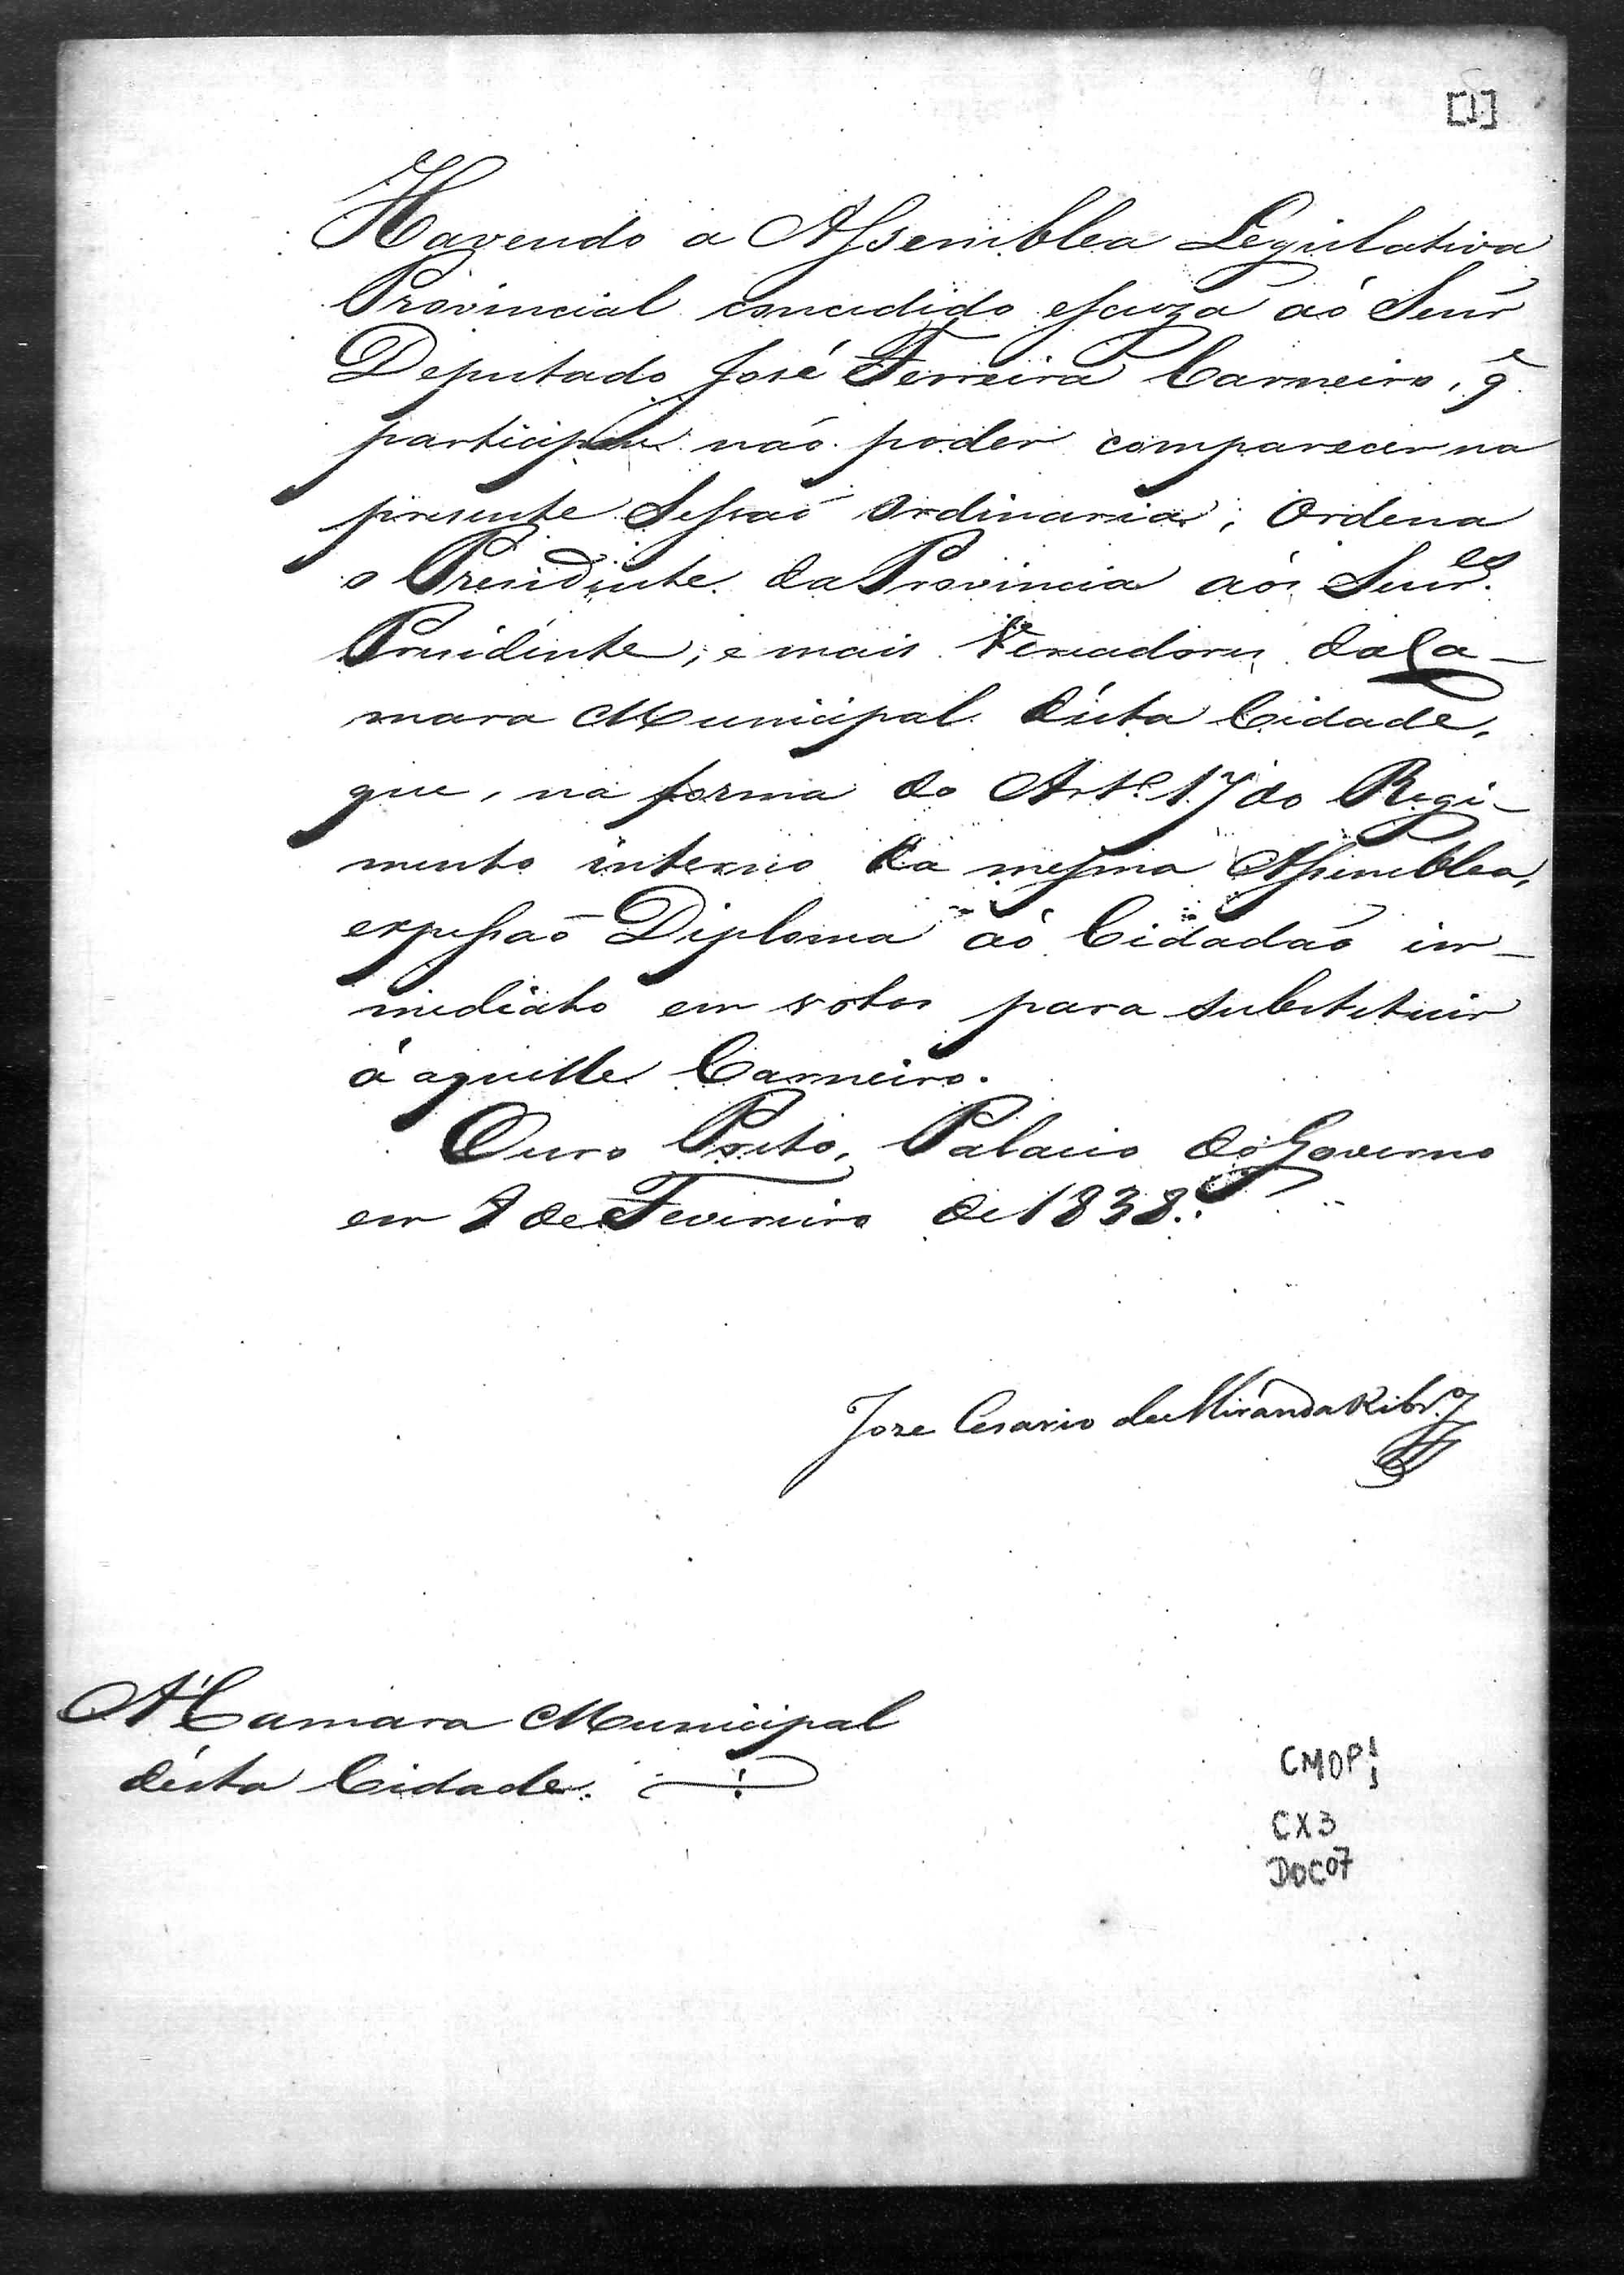 [1]
Havendo a Assemblea Legislativa
Provincial concedido escuza aó Senr
Deputado José Ferreira Carneiro, q̃
participou não poder comparecer na
presente Sessaõ Ordinaria; Ordena
o Presidente da Provincia aos Senr.es
Presidente, e mais Vereadores da Ca-
mara Municipal désta Cidade,
que, na forma do Art.º 17 do Regi-
mento interno da mesma Assemblea,
expessaõ Diploma aó Cidadão im-
mediato em votos para substituir
á aquelle Carneiro.
Ouro Preto, Palacio do Governo
em 8 de Fevereiro de 1838.
Joze Cesario de Miranda Ribr.º
A' Camara Municipal
désta Cidade.
CMOP
CX3
DOC07